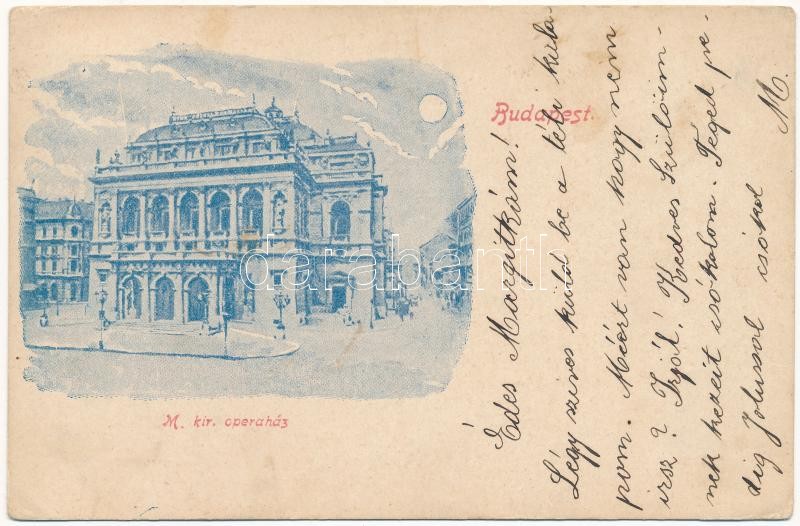 Budapest.
M. kir. operaház
Édes Margitkám!
Légy szives küld be a téli kala-
pom. Miért van hogy nem
irsz? Irjál! Kedves Szülőim-
nek kezeit csókolom. Téged pe-
dig Jolussal csókol
M.
darabanth